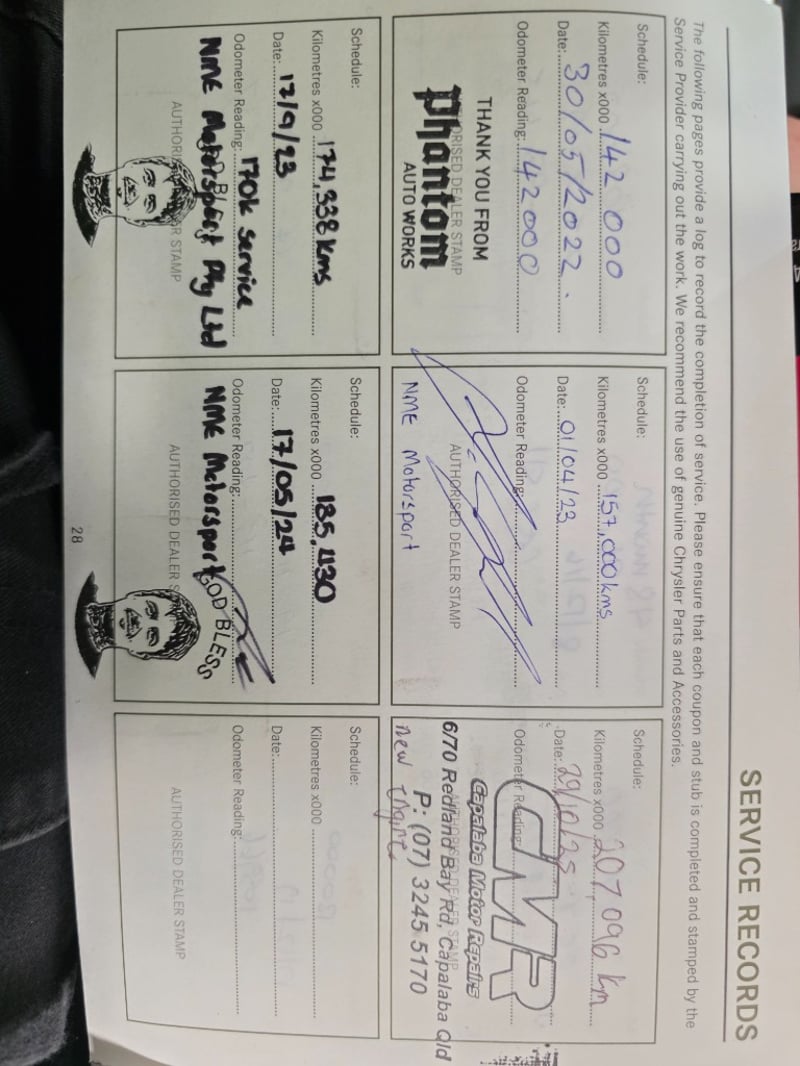 SERVICE RECORDS
The following pages provide a log to record the completion of service. Please ensure that each coupon and stub is completed and stamped by the
Service Provider carrying out the work. We recommend the use of genuine Chrysler Parts and Accessories.
Schedule:
Kilometres x000 142 000
Date: 30/05/2022.
Odometer Reading: 142000
THANK YOU FROM
AUTHORISED DEALER STAMP
Phantom
AUTO WORKS
Schedule:
Kilometres x000 157,000kms
Date: 01/04/23
Odometer Reading:
AUTHORISED DEALER STAMP
NME Motorsport
Schedule:
Kilometres x000 207096 km
Date: 29/10/25
Odometer Reading:
CMR
Capalaba Motor Repairs
AUTHORISED DEALER STAMP
6/70 Redland Bay Rd, Capalaba Qld
P: (07) 3245 5170
new
Schedule:
Kilometres x000 174,338kms
Date: 17/9/23
Odometer Reading: 170k Service
NME Motorsport Pty Ltd
AUTHORISED DEALER STAMP
Schedule:
Kilometres x000 185,430
Date: 17/05/24
Odometer Reading:
NME Motorsport
GOD BLESS
AUTHORISED DEALER S
Schedule:
Kilometres x000
Date:
Odometer Reading:
AUTHORISED DEALER STAMP
28